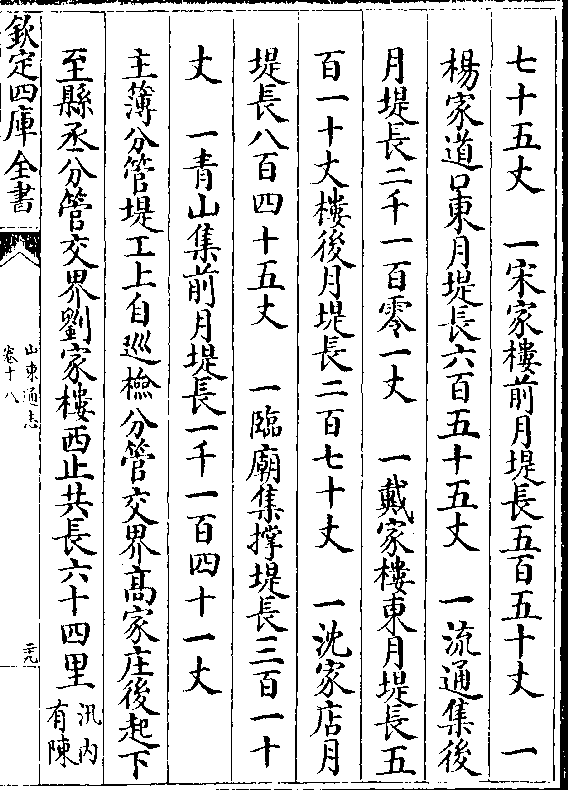 七十五丈　一宋家樓前月堤長五百五十丈　一
楊家道口東月堤長六百五十五丈　一流通集後
月堤長二千一百零一丈　一戴家樓東月堤長五
百一十丈樓後月堤長二百七十丈　一沈家店月
堤長八百四十五丈　一臨廟集撐堤長三百一十
丈　一青山集前月堤長一千一百四十一丈
主簿分管堤工上自巡檢分管交界高家庄後起下
至縣丞分管交界劉家樓西止共長六十四里
汛内
有陳
欽定四庫全書
山東通志
卷十八
三九